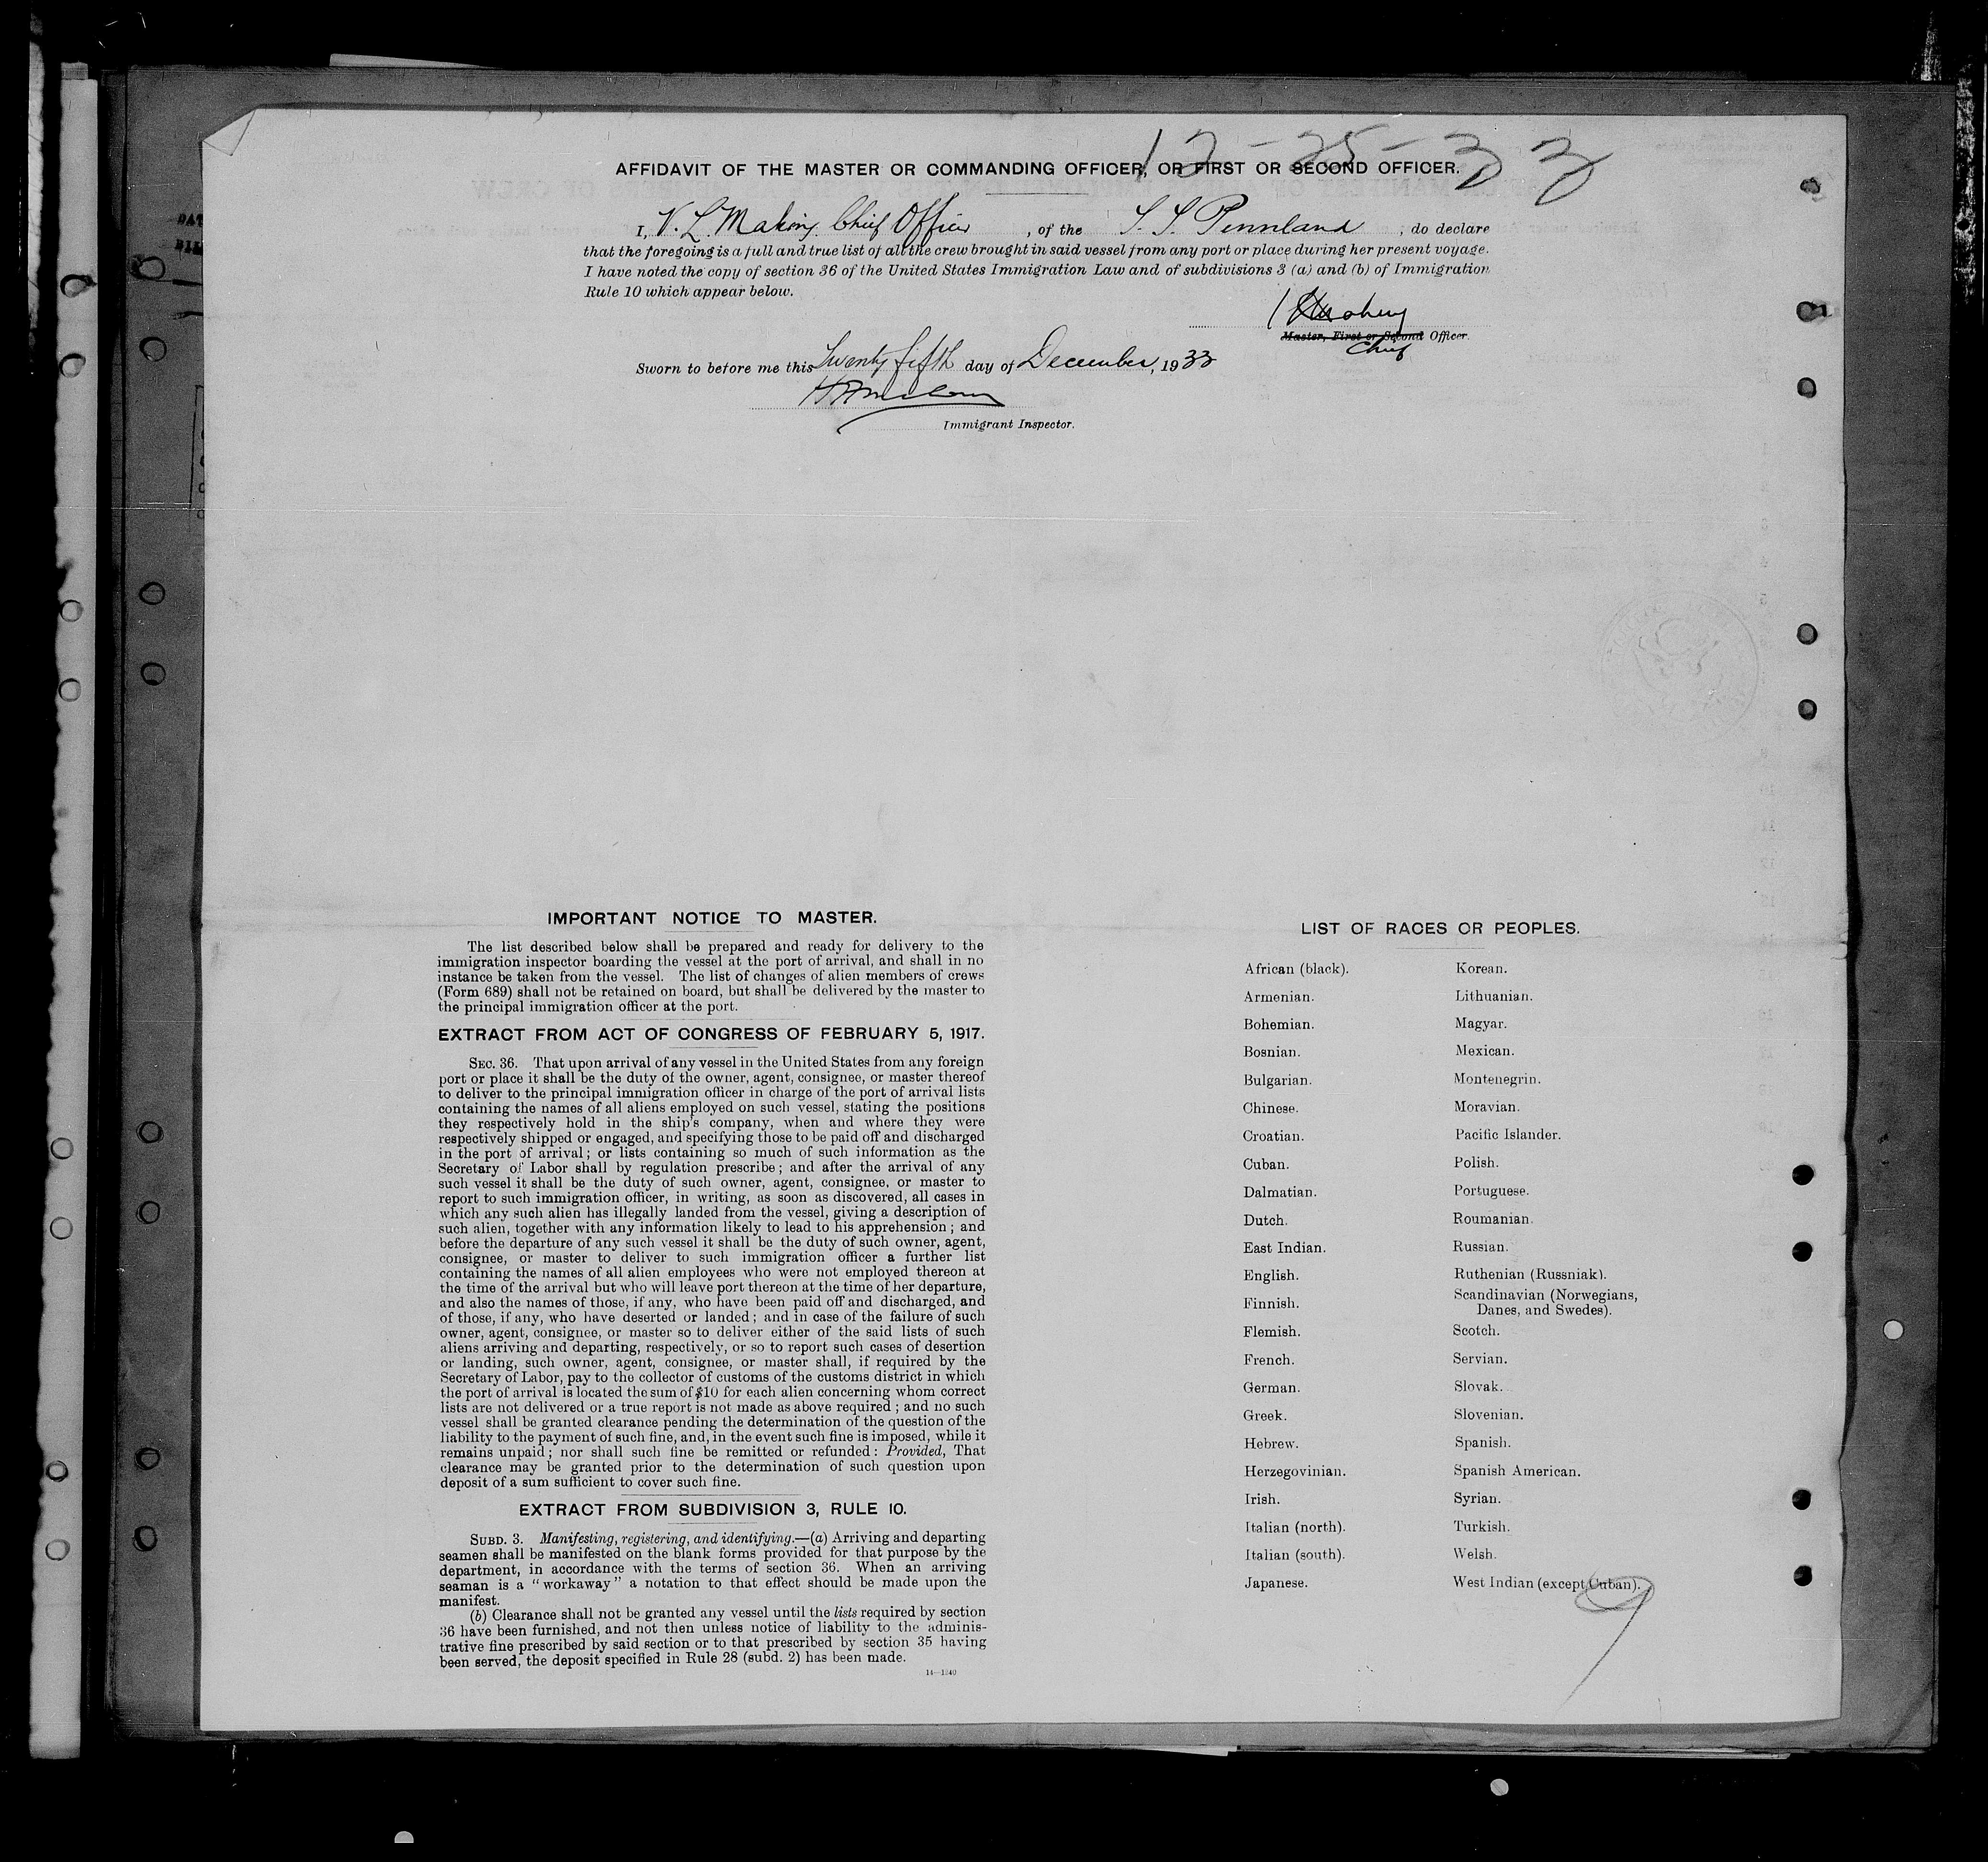 12-25-33
AFFIDAVIT OF THE MASTER OR COMMANDING OFFICER, OR FIRST OR SECOND OFFICER.
I, V. L. Making Chief Officer, of the S. S. Pennland, do declare
that the foregoing is a full and true list of all the crew brought in said vessel from any port or place during her present voyage.
I have noted the copy of section 36 of the United States Immigration Law and of subdivisions 3 (a) and (b) of Immigration
Rule 10 which appear below.
Master, First or Second Officer.
Chief
Sworn to before me this Twenty fifth day of December, 1933
Immigrant Inspector.
IMPORTANT NOTICE TO MASTER.
The list described below shall be prepared and ready for delivery to the
immigration inspector boarding the vessel at the port of arrival, and shall in no
instance be taken from the vessel. The list of changes of alien members of crews
(Form 689) shall not be retained on board, but shall be delivered by the master to
the principal immigration officer at the port.
EXTRACT FROM ACT OF CONGRESS OF FEBRUARY 5, 1917.
SEC. 36. That upon arrival of any vessel in the United States from any foreign
port or place it shall be the duty of the owner, agent, consignee, or master thereof
to deliver to the principal immigration officer in charge of the port of arrival lists
containing the names of all aliens employed on such vessel, stating the positions
they respectively hold in the ship's company, when and where they were
respectively shipped or engaged, and specifying those to be paid off and discharged
in the port of arrival; or lists containing so much of such information as the
Secretary of Labor shall by regulation prescribe; and after the arrival of any
such vessel it shall be the duty of such owner, agent, consignee, or master to
report to such immigration officer, in writing, as soon as discovered, all cases in
which any such alien has illegally landed from the vessel, giving a description of
such alien, together with any information likely to lead to his apprehension; and
before the departure of any such vessel it shall be the duty of such owner, agent,
consignee, or master to deliver to such immigration officer a further list
containing the names of all alien employees who were not employed thereon at
the time of the arrival but who will leave port thereon at the time of her departure,
and also the names of those, if any, who have been paid off and discharged, and
of those, if any, who have deserted or landed; and in case of the failure of such
owner, agent, consignee, or master so to deliver either of the said lists of such
aliens arriving and departing, respectively, or so to report such cases of desertion
or landing, such owner, agent, consignee, or master shall, if required by the
Secretary of Labor, pay to the collector of customs of the customs district in which
the port of arrival is located the sum of $10 for each alien concerning whom correct
lists are not delivered or a true report is not made as above required; and no such
vessel shall be granted clearance pending the determination of the question of the
liability to the payment of such fine, and, in the event such fine is imposed, while it
remains unpaid; nor shall such fine be remitted or refunded: Provided, That
clearance may be granted prior to the determination of such question upon
deposit of a sum sufficient to cover such fine.
EXTRACT FROM SUBDIVISION 3, RULE 10.
SUBD. 3. Manifesting, registering, and identifying.—(a) Arriving and departing
seamen shall be manifested on the blank forms provided for that purpose by the
department, in accordance with the terms of section 36. When an arriving
seaman is a "workaway" a notation to that effect should be made upon the
manifest.
(b) Clearance shall not be granted any vessel until the lists required by section
36 have been furnished, and not then unless notice of liability to the adminis-
trative fine prescribed by said section or to that prescribed by section 35 having
been served, the deposit specified in Rule 28 (subd. 2) has been made.
14—1240
LIST OF RACES OR PEOPLES.
African (black).
Armenian.
Bohemian.
Bosnian.
Bulgarian.
Chinese.
Croatian.
Cuban.
Dalmatian.
Dutch.
East Indian.
English.
Finnish.
Flemish.
French.
German.
Greek.
Hebrew.
Herzegovinian.
Irish.
Italian (north).
Italian (south).
Japanese.
Korean.
Lithuanian.
Magyar.
Mexican.
Montenegrin.
Moravian.
Pacific Islander.
Polish.
Portuguese.
Roumanian.
Russian.
Ruthenian (Russniak).
Scandinavian (Norwegians,
Danes, and Swedes).
Scotch.
Servian.
Slovak.
Slovenian.
Spanish.
Spanish American.
Syrian.
Turkish.
Welsh.
West Indian (except Cuban).